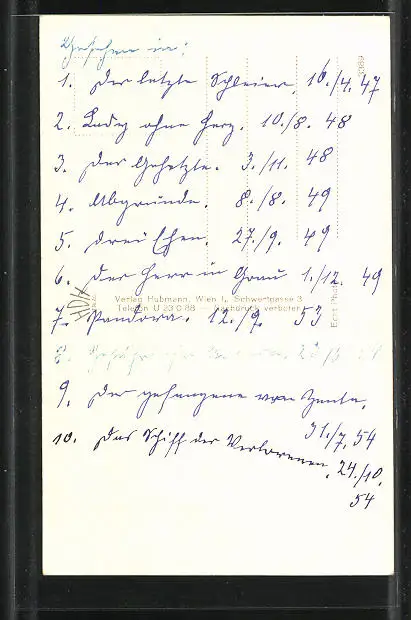 Gesehen in:
1. Der letzte Schleier. 16./4. 47
2. Lady ohne Herz. 10./8. 48
3. Der Gehetzte. 3./11. 48
4. Abgründe. 8./8. 49
5. Drei Ehen. 27./9. 49
6. Der Herr in Grau 1./12. 49
Verlag Hubmann, Wien I., Schwertgasse 3
Telefon U 23 0 88 — Nachdruck verboten
7. Pandora. 12./9. 53
8.
9. Der Gefangene von Zenda.
31./7. 54
10. Das Schiff der Verlorenen. 24./10.
54